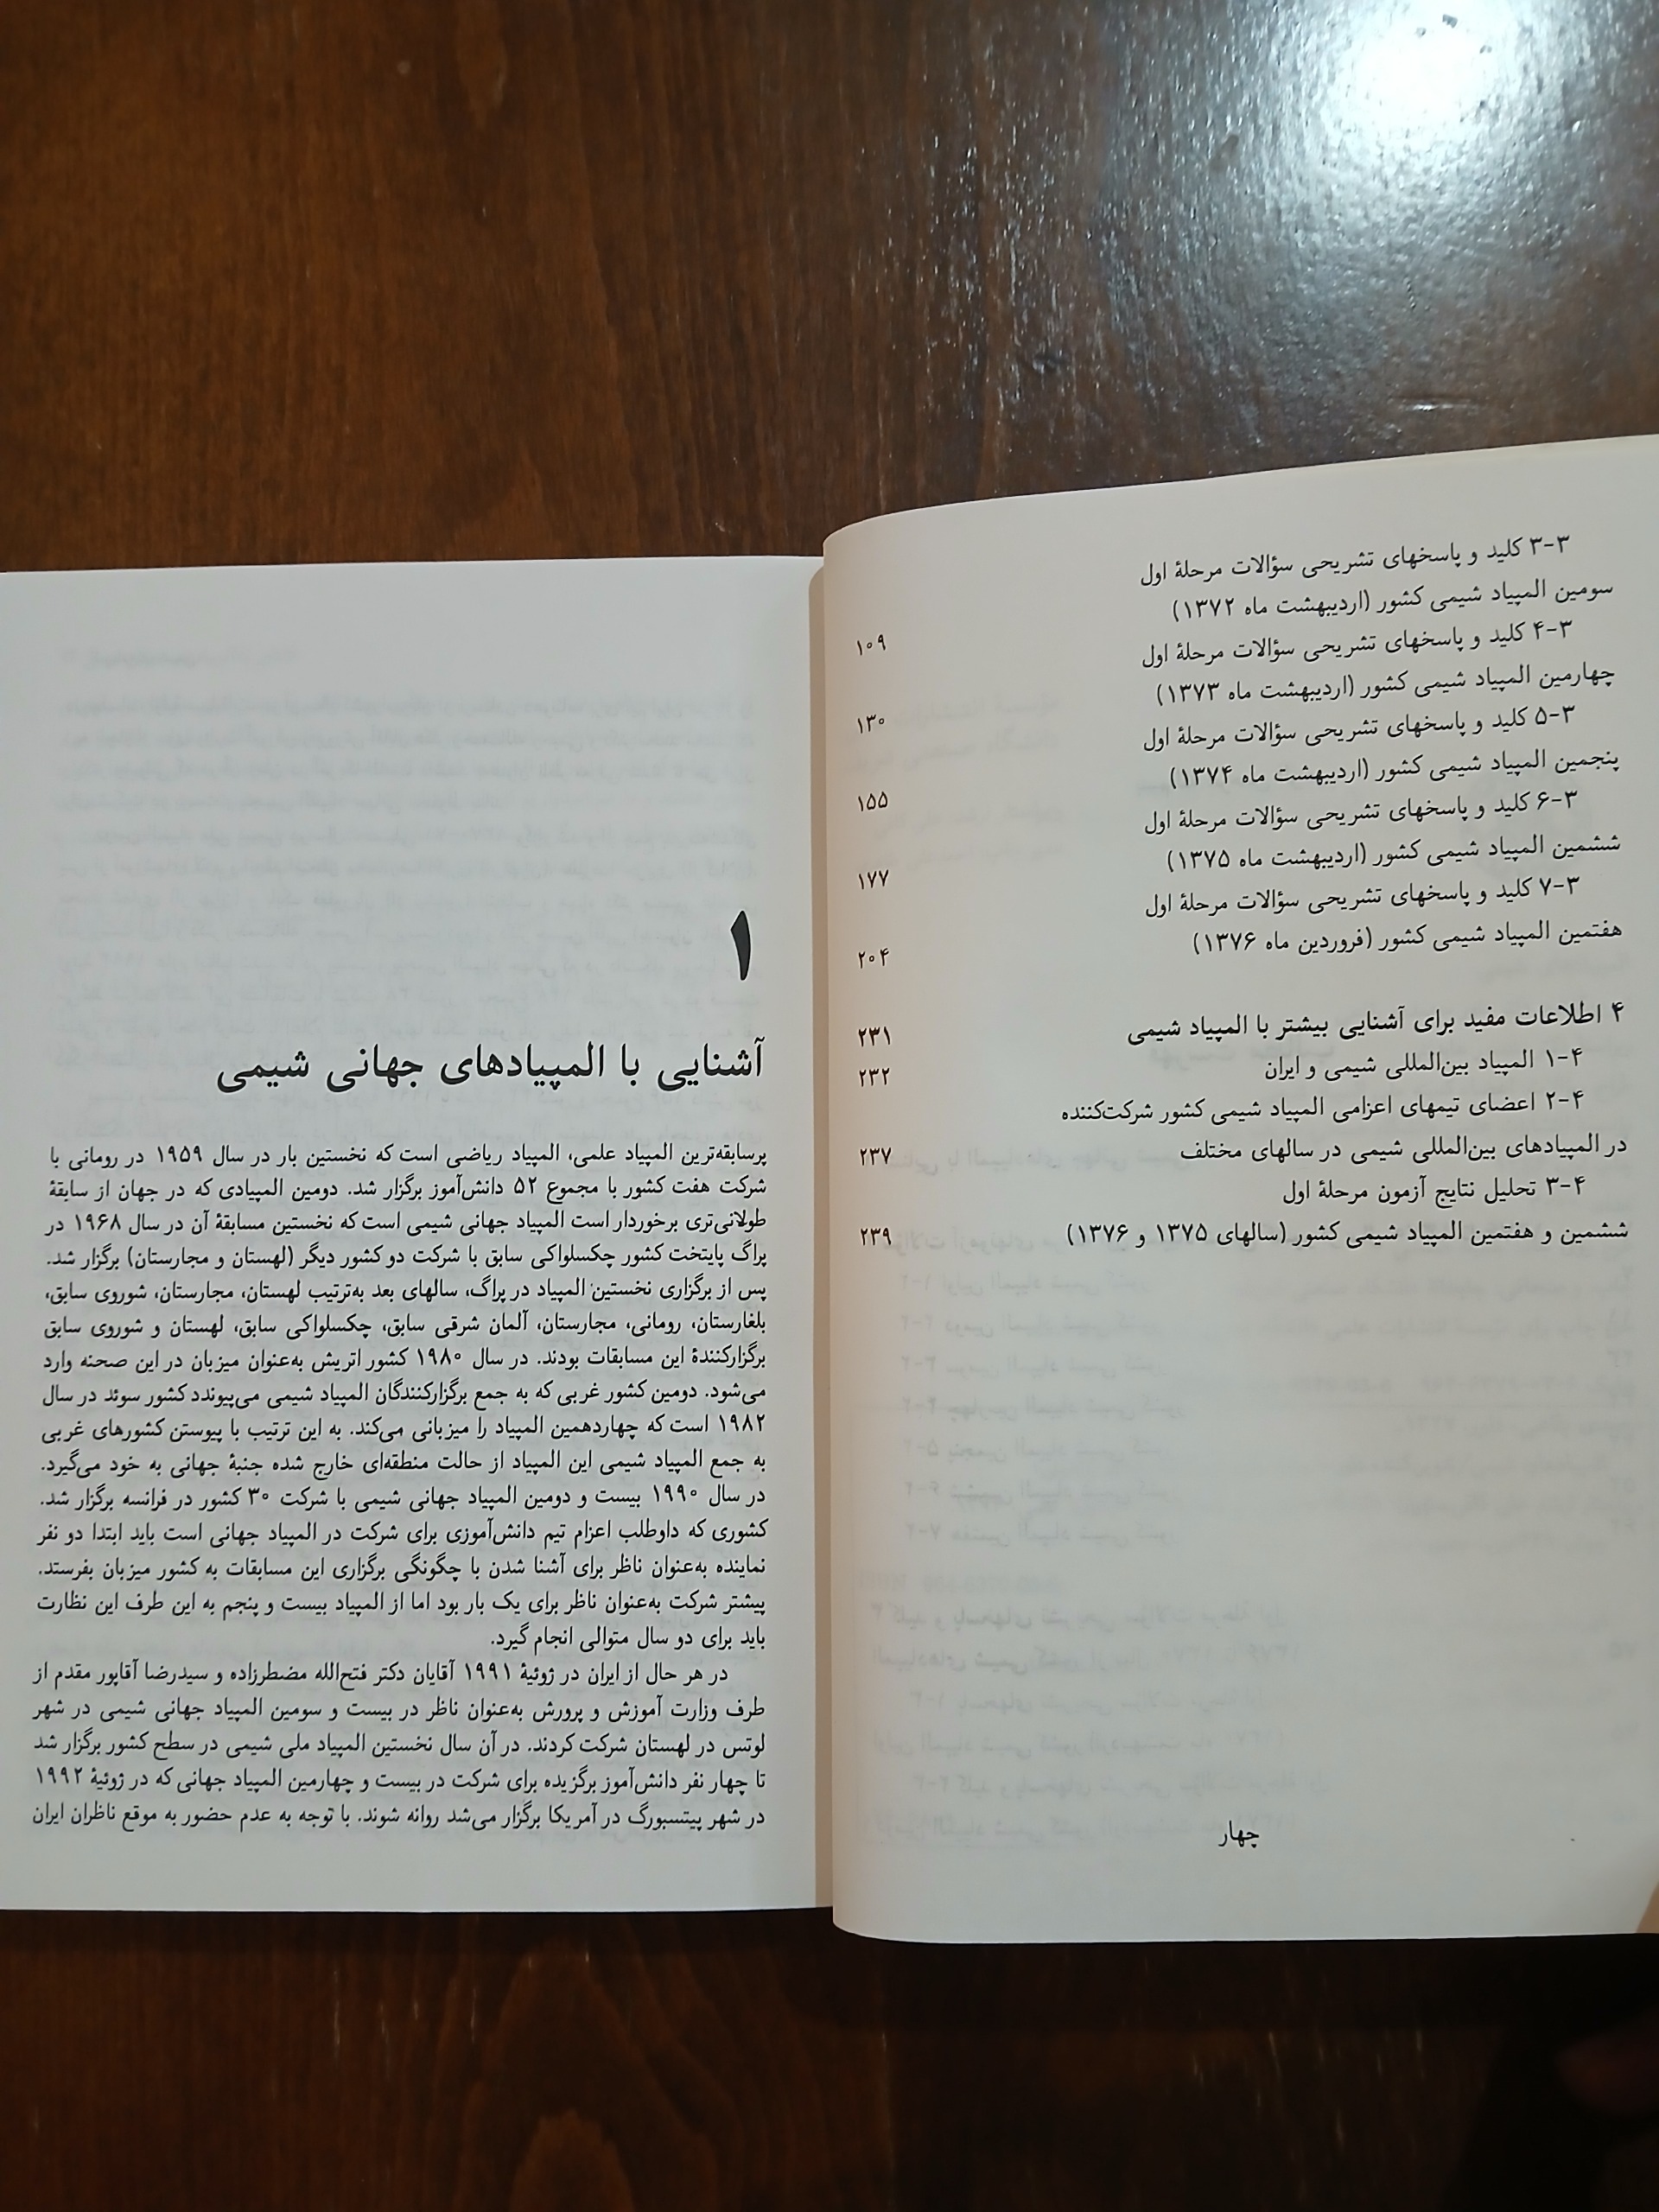 ۳-۳ کلید و پاسخهای تشریحی سؤالات مرحلهٔ اول
سومین المپیاد شیمی کشور (اردیبهشت ماه ۱۳۷۲) ۱۰۹
۳-۴ کلید و پاسخهای تشریحی سؤالات مرحلهٔ اول
چهارمین المپیاد شیمی کشور (اردیبهشت ماه ۱۳۷۳) ۱۳۰
۳-۵ کلید و پاسخهای تشریحی سؤالات مرحلهٔ اول
پنجمین المپیاد شیمی کشور (اردیبهشت ماه ۱۳۷۴) ۱۵۵
۳-۶ کلید و پاسخهای تشریحی سؤالات مرحلهٔ اول
ششمین المپیاد شیمی کشور (اردیبهشت ماه ۱۳۷۵) ۱۷۷
۳-۷ کلید و پاسخهای تشریحی سؤالات مرحلهٔ اول
هفتمین المپیاد شیمی کشور (فروردین ماه ۱۳۷۶) ۲۰۴
۴ اطلاعات مفید برای آشنایی بیشتر با المپیاد شیمی ۲۳۱
۴-۱ المپیاد بین‌المللی شیمی و ایران ۲۳۲
۴-۲ اعضای تیمهای اعزامی المپیاد شیمی کشور شرکت‌کننده
در المپیادهای بین‌المللی شیمی در سالهای مختلف ۲۳۷
۴-۳ تحلیل نتایج آزمون مرحلهٔ اول
ششمین و هفتمین المپیاد شیمی کشور (سالهای ۱۳۷۵ و ۱۳۷۶) ۲۳۹
چهار
۱
آشنایی با المپیادهای جهانی شیمی
پرسابقه‌ترین المپیاد علمی، المپیاد ریاضی است که نخستین بار در سال ۱۹۵۹ در رومانی با
شرکت هفت کشور با مجموع ۵۲ دانش‌آموز برگزار شد. دومین المپیادی که در جهان از سابقهٔ
طولانی‌تری برخوردار است المپیاد جهانی شیمی است که نخستین مسابقهٔ آن در سال ۱۹۶۸ در
پراگ پایتخت کشور چکسلواکی سابق با شرکت دو کشور دیگر (لهستان و مجارستان) برگزار شد.
پس از برگزاری نخستین المپیاد در پراگ، سالهای بعد به‌ترتیب لهستان، مجارستان، شوروی سابق،
بلغارستان، رومانی، مجارستان، آلمان شرقی سابق، چکسلواکی سابق، لهستان و شوروی سابق
برگزارکنندهٔ این مسابقات بودند. در سال ۱۹۸۰ کشور اتریش به‌عنوان میزبان در این صحنه وارد
می‌شود. دومین کشور غربی که به جمع برگزارکنندگان المپیاد شیمی می‌پیوندد کشور سوئد در سال
۱۹۸۲ است که چهاردهمین المپیاد را میزبانی می‌کند. به این ترتیب با پیوستن کشورهای غربی
به جمع المپیاد شیمی این المپیاد از حالت منطقه‌ای خارج شده جنبهٔ جهانی به خود می‌گیرد.
در سال ۱۹۹۰ بیست و دومین المپیاد جهانی شیمی با شرکت ۳۰ کشور در فرانسه برگزار شد.
کشوری که داوطلب اعزام تیم دانش‌آموزی برای شرکت در المپیاد جهانی است باید ابتدا دو نفر
نماینده به‌عنوان ناظر برای آشنا شدن با چگونگی برگزاری این مسابقات به کشور میزبان بفرستد.
پیشتر شرکت به‌عنوان ناظر برای یک بار بود اما از المپیاد بیست و پنجم به این طرف این نظارت
باید برای دو سال متوالی انجام گیرد.
در هر حال از ایران در ژوئیهٔ ۱۹۹۱ آقایان دکتر فتح‌الله مضطرزاده و سیدرضا آقاپور مقدم از
طرف وزارت آموزش و پرورش به‌عنوان ناظر در بیست و سومین المپیاد جهانی شیمی در شهر
لوتس در لهستان شرکت کردند. در آن سال نخستین المپیاد ملی شیمی در سطح کشور برگزار شد
تا چهار نفر دانش‌آموز برگزیده برای شرکت در بیست و چهارمین المپیاد جهانی که در ژوئیهٔ ۱۹۹۲
در شهر پیتسبورگ در آمریکا برگزار می‌شد روانه شوند. با توجه به عدم حضور به موقع ناظران ایران